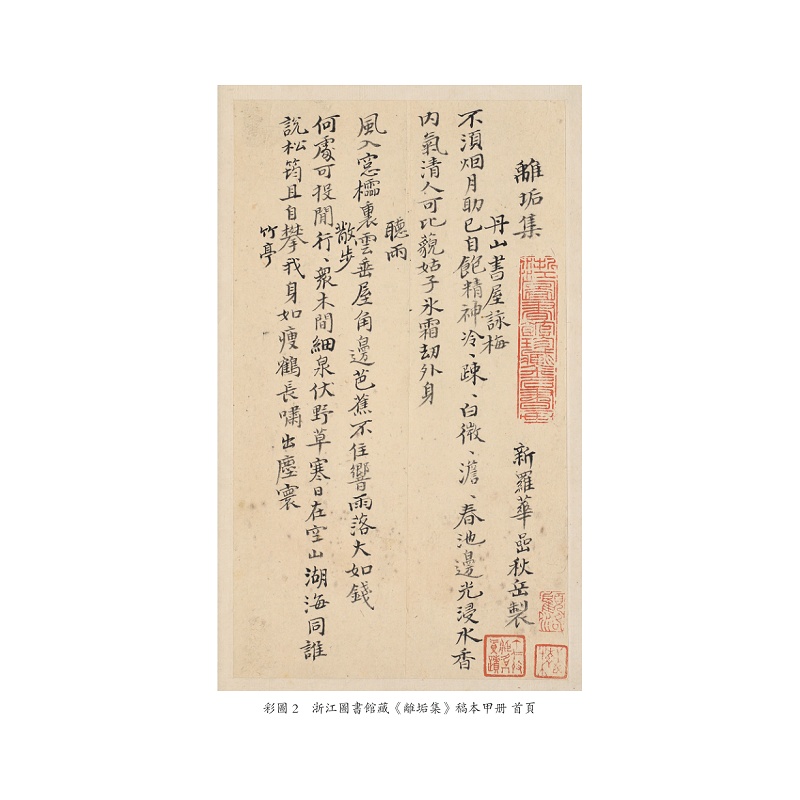 離垢集
新羅華嵒秋岳製
丹山書屋詠梅
不須烟月助已自飽精神冷、疎、白微、澹、春池邊光浸水香
內氣清人可比藐姑子氷霜刧外身
聽雨
風入窓櫺裏雲垂屋角邊芭蕉不住響雨落大如錢
散步
何處可投閒行、衆木間細泉伏野草寒日在空山湖海同誰
說松筠且自攀我身如瘦鶴長嘯出塵寰
竹亭
浙江圖書館珍藏善本書畫
彩圖 2 浙江圖書館藏《離垢集》稿本甲册 首頁